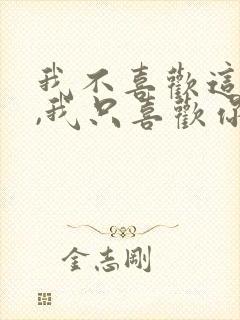 我不喜歡這
,我只喜歡你
金志剛